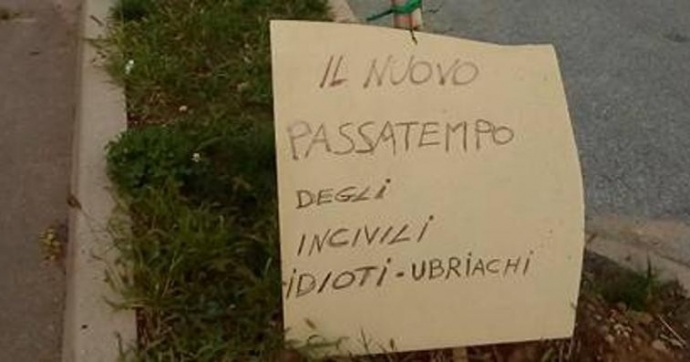 IL NUOVO
PASSATEMPO
DEGLi
INCIVILi
iDIOTi-UBRiACHi